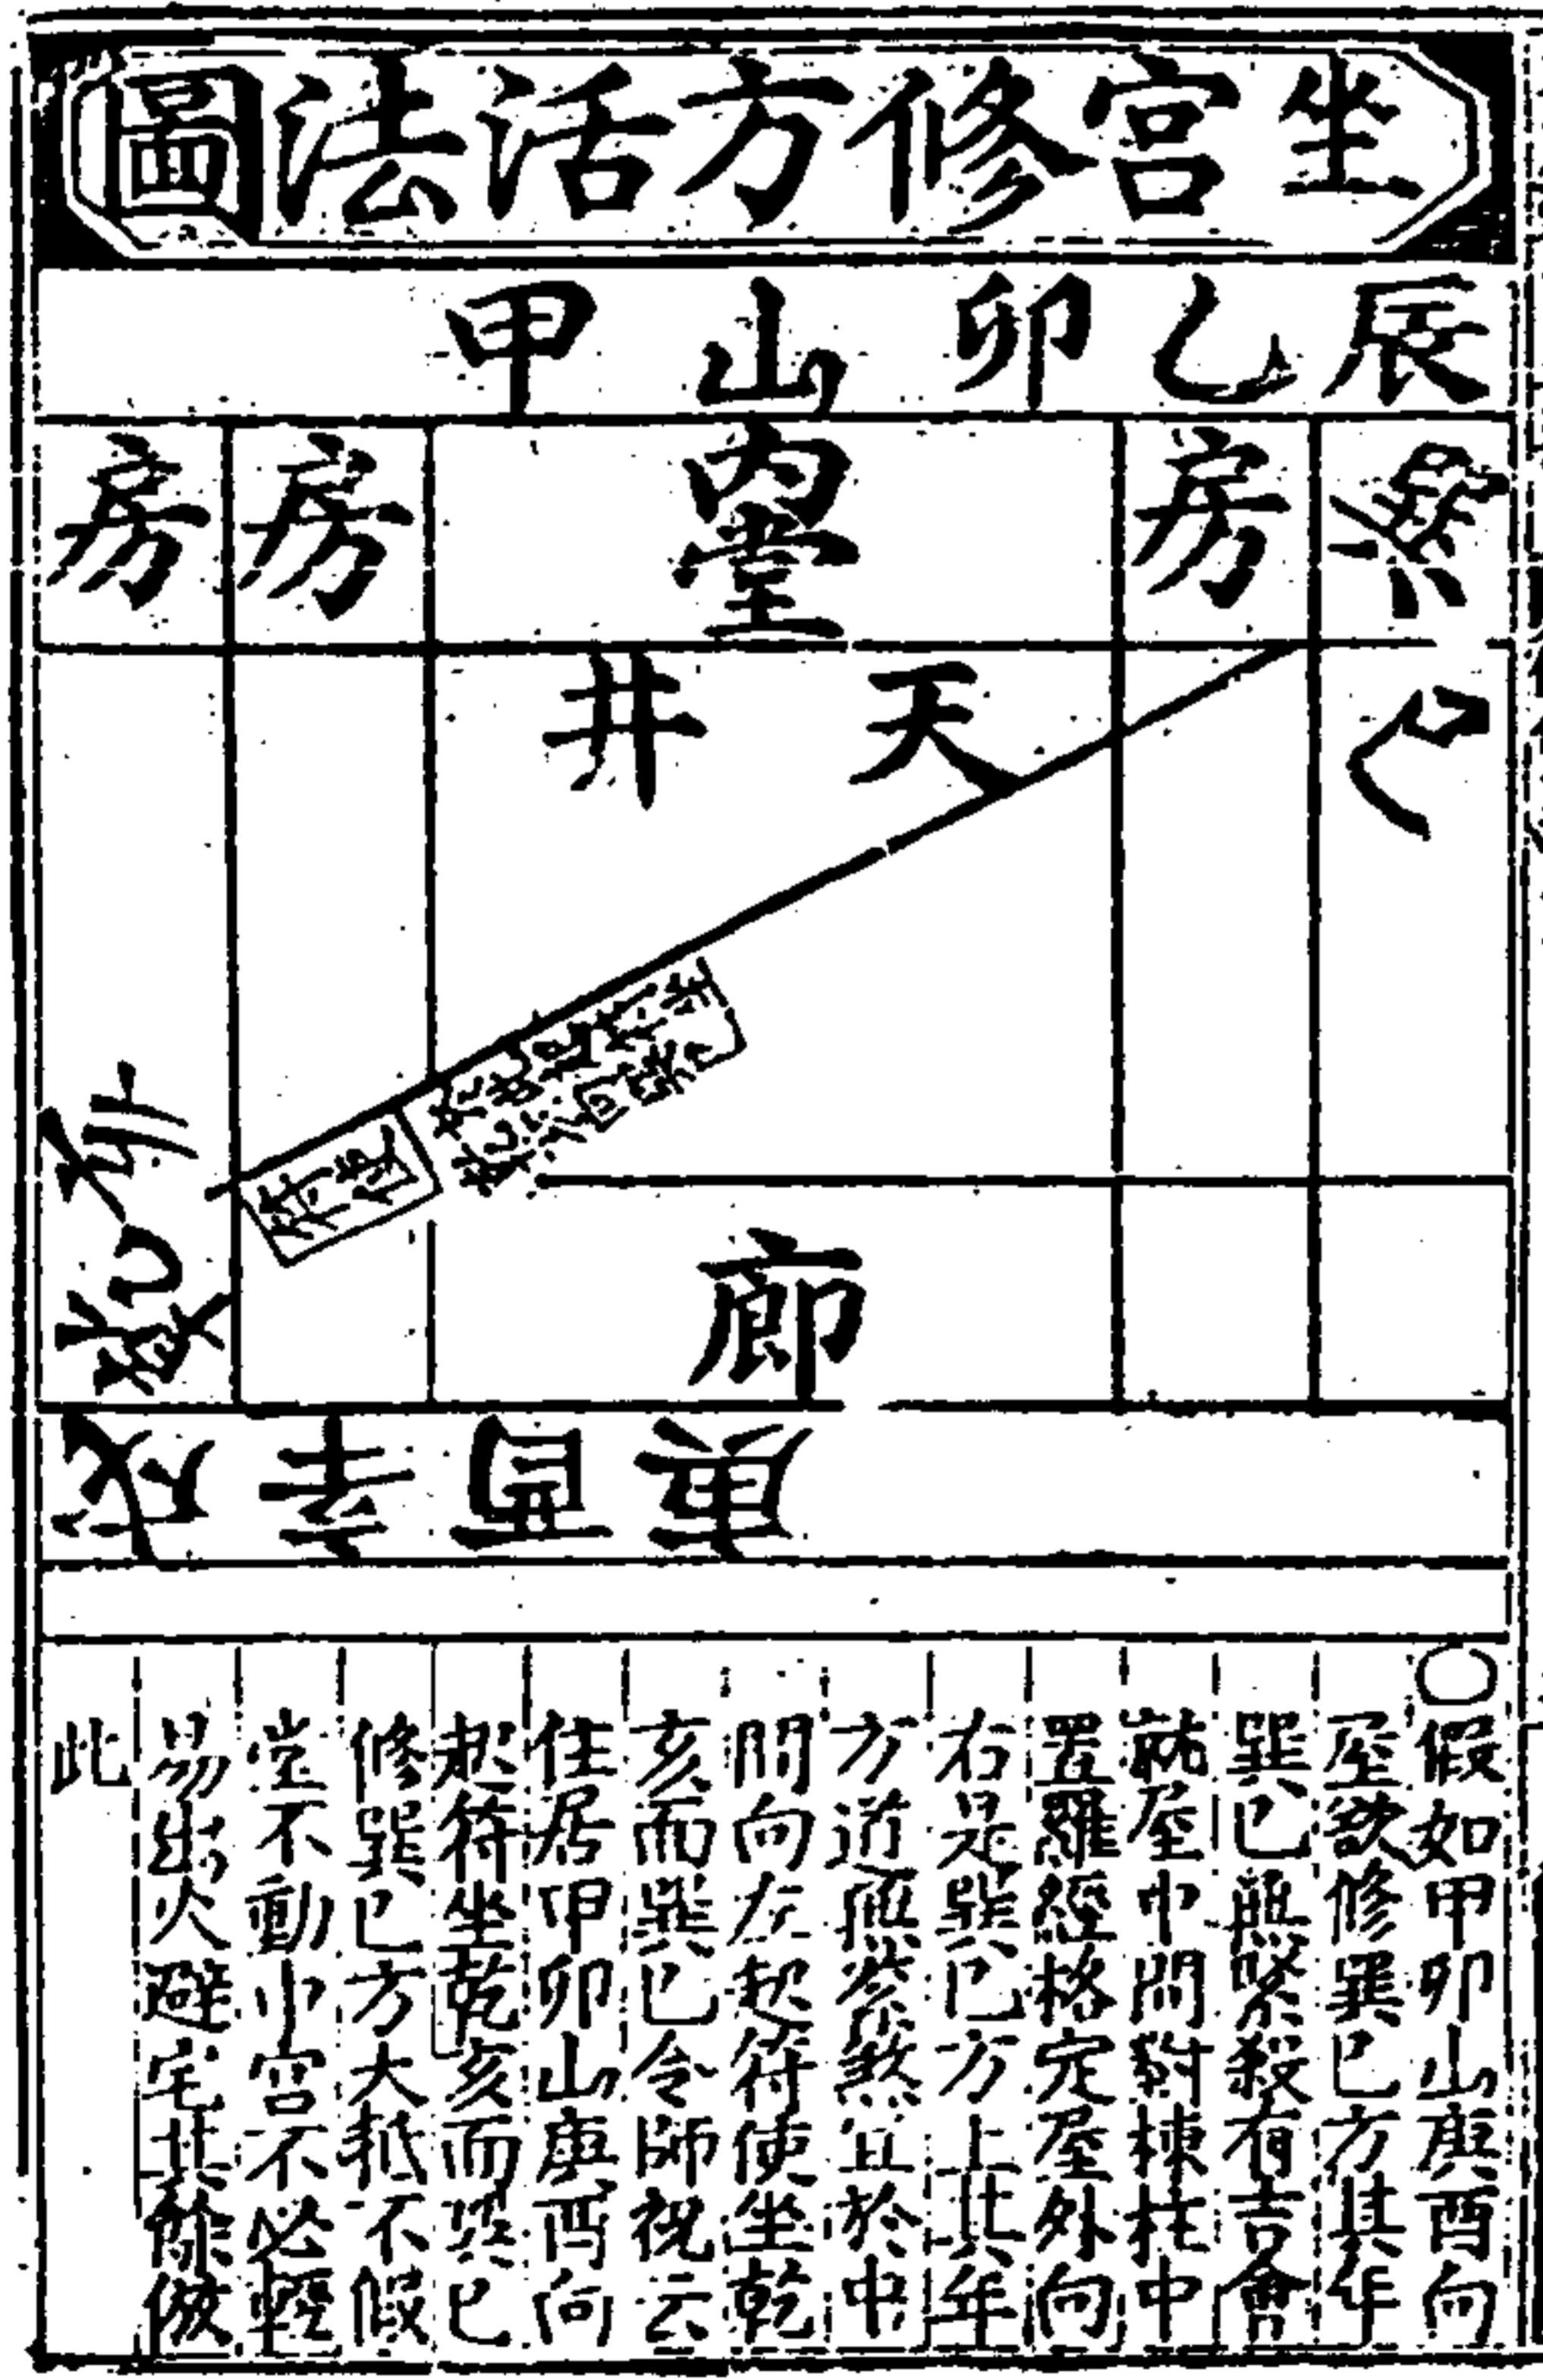 坐宮修方活法圖
辰乙卯山甲
巽房内堂房房
巳天井
符使
亥
乾
廊
戌辛酉庚
〇假如甲卯山庚酉向
屋欲修巽巳方其年
巽巳無緊殺有吉會
就屋中間對棟柱中
置羅經格定屋外向
右是巽巳方上其年
方道無緊煞宜於中
間向左起符使坐乾
亥而巽巳令師祝云
住居甲卯山庚酉向
起符坐乾亥而巽巳
修巽巳方大抵不假
堂不動中宮不必輕
易出火避宅其餘倣
此